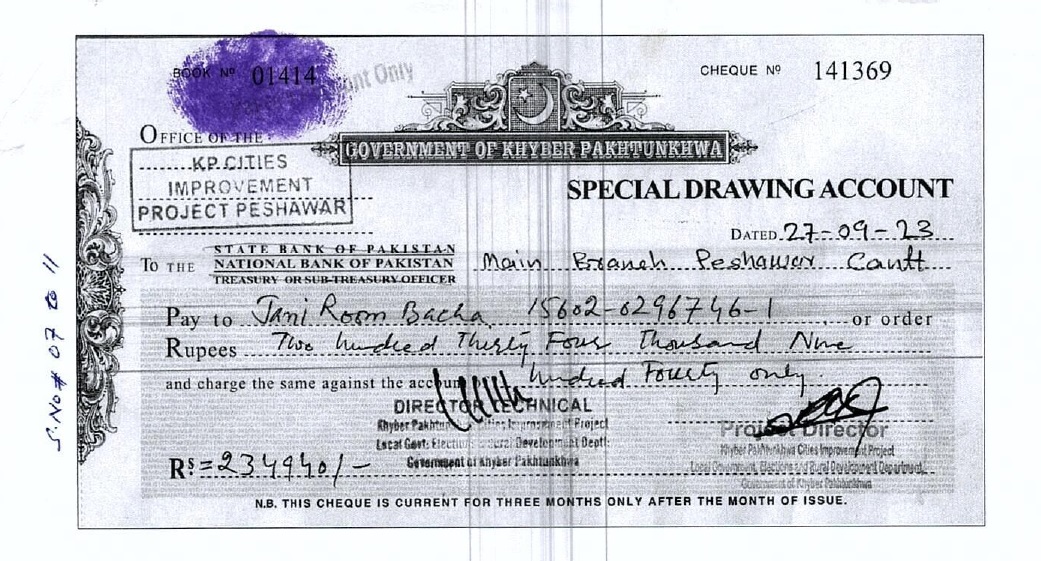 BOOK Nº 01414
nt Only
CHEQUE Nº 141369
OFFICE OF THE
KP CITIES
IMPROVEMENT
PROJECT PESHAWAR
GOVERNMENT OF KHYBER PAKHTUNKHWA
SPECIAL DRAWING ACCOUNT
DATED 27-09-23
STATE BANK OF PAKISTAN
TO THE NATIONAL BANK OF PAKISTAN Main Branch Peshawar Cantt
TREASURY OR SUB-TREASURY OFFICER
Pay to Jani Room Bacha 15602-0296746-1 or order
Rupees Two hundred Thirty Four Thousand Nine
and charge the same against the accoun hundred Fourty only.
DIRECTOR TECHNICAL
Khyber Pakhtun Cities Improvement Project
Local Govt: Elections Rural Development Deptt:
Government of Khyber Pakhtunkhwa
Project Director
Khyber Pakhtunkhwa Cities Improvement Project
Local Government, Elections and Rural Development Department
Government of Khyber Pakhtunkhwa
Rs = 234940/-
N.B. THIS CHEQUE IS CURRENT FOR THREE MONTHS ONLY AFTER THE MONTH OF ISSUE.
S.No# 07
11